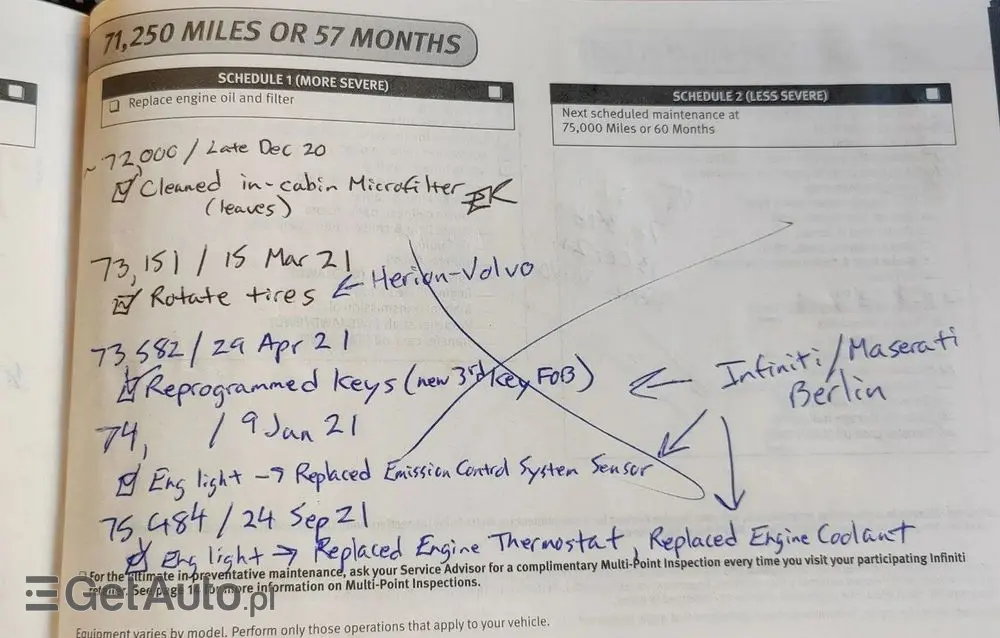 71,250 MILES OR 57 MONTHS
SCHEDULE 1 (MORE SEVERE)
Replace engine oil and filter
SCHEDULE 2 (LESS SEVERE)
Next scheduled maintenance at
75,000 Miles or 60 Months
~72,000 / Late Dec 20
Cleaned in-cabin Microfilter EK
(leaves)
73,151 / 15 Mar 21
Rotate tires ← Herion-Volvo
73,582 / 29 Apr 21
Reprogrammed keys (new 3rd key FOB) ← Infiniti/Maserati
Berlin
74, / 9 Jun 21
Eng light → Replaced Emission Control System Sensor
75,484 / 24 Sep 21
Eng light → Replaced Engine Thermostat, Replaced Engine Coolant
For the ultimate in preventative maintenance, ask your Service Advisor for a complimentary Multi-Point Inspection every time you visit your participating Infiniti
See page for more information on Multi-Point Inspections.
GetAuto.pl
Equipment varies by model. Perform only those operations that apply to your vehicle.